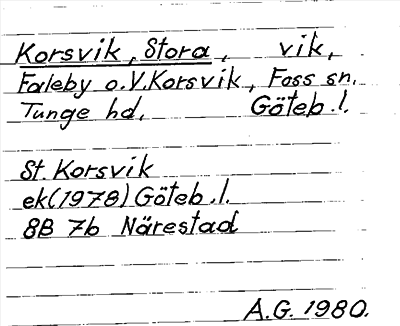 Korsvik, Stora, vik,
Faleby o. V. Korsvik, Foss sn.
Tunge hd. Göteb. l.
St. Korsvik
ek (1978) Göteb. l.
8B 7b Närestad
A.G. 1980.